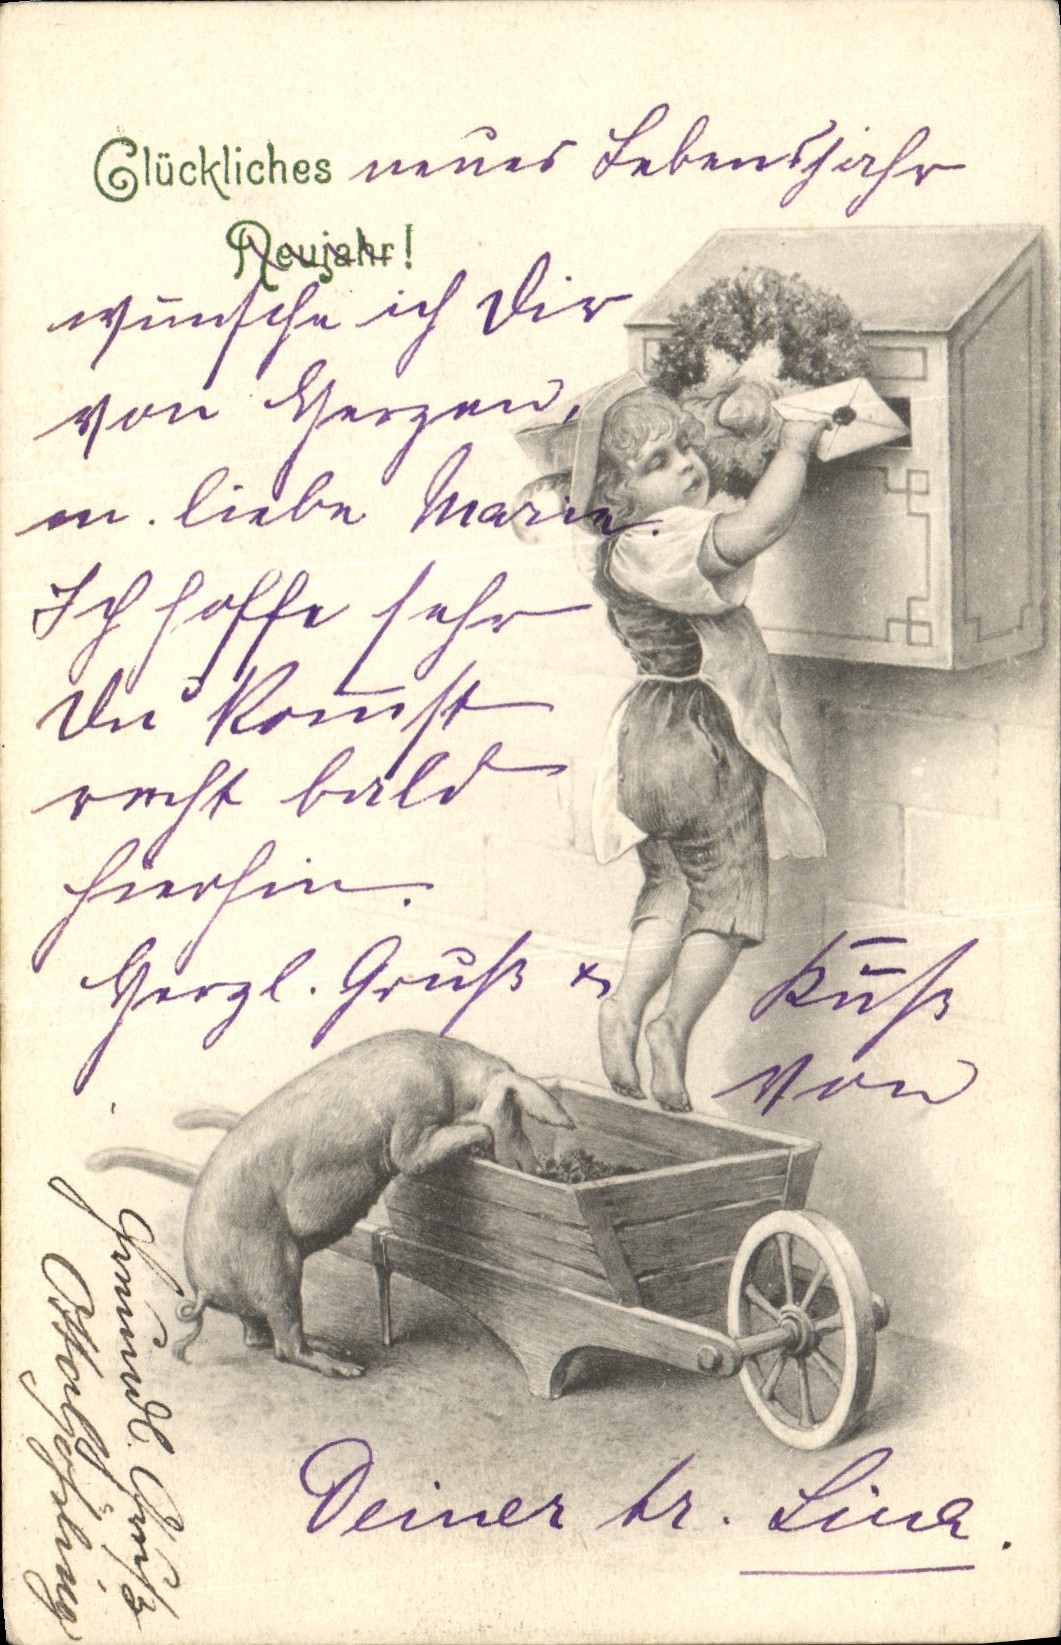 Glückliches neues Lebensjahr
Neujahr!
wünsche ich Dir
von Herzen,
m. liebe Marie.
Ich hoffe sehr
Du kom̅st
recht bald
hierhin.
Herzl. Gruß & Kuß
von
Deiner tr. Lina.
Freundl. Gruß